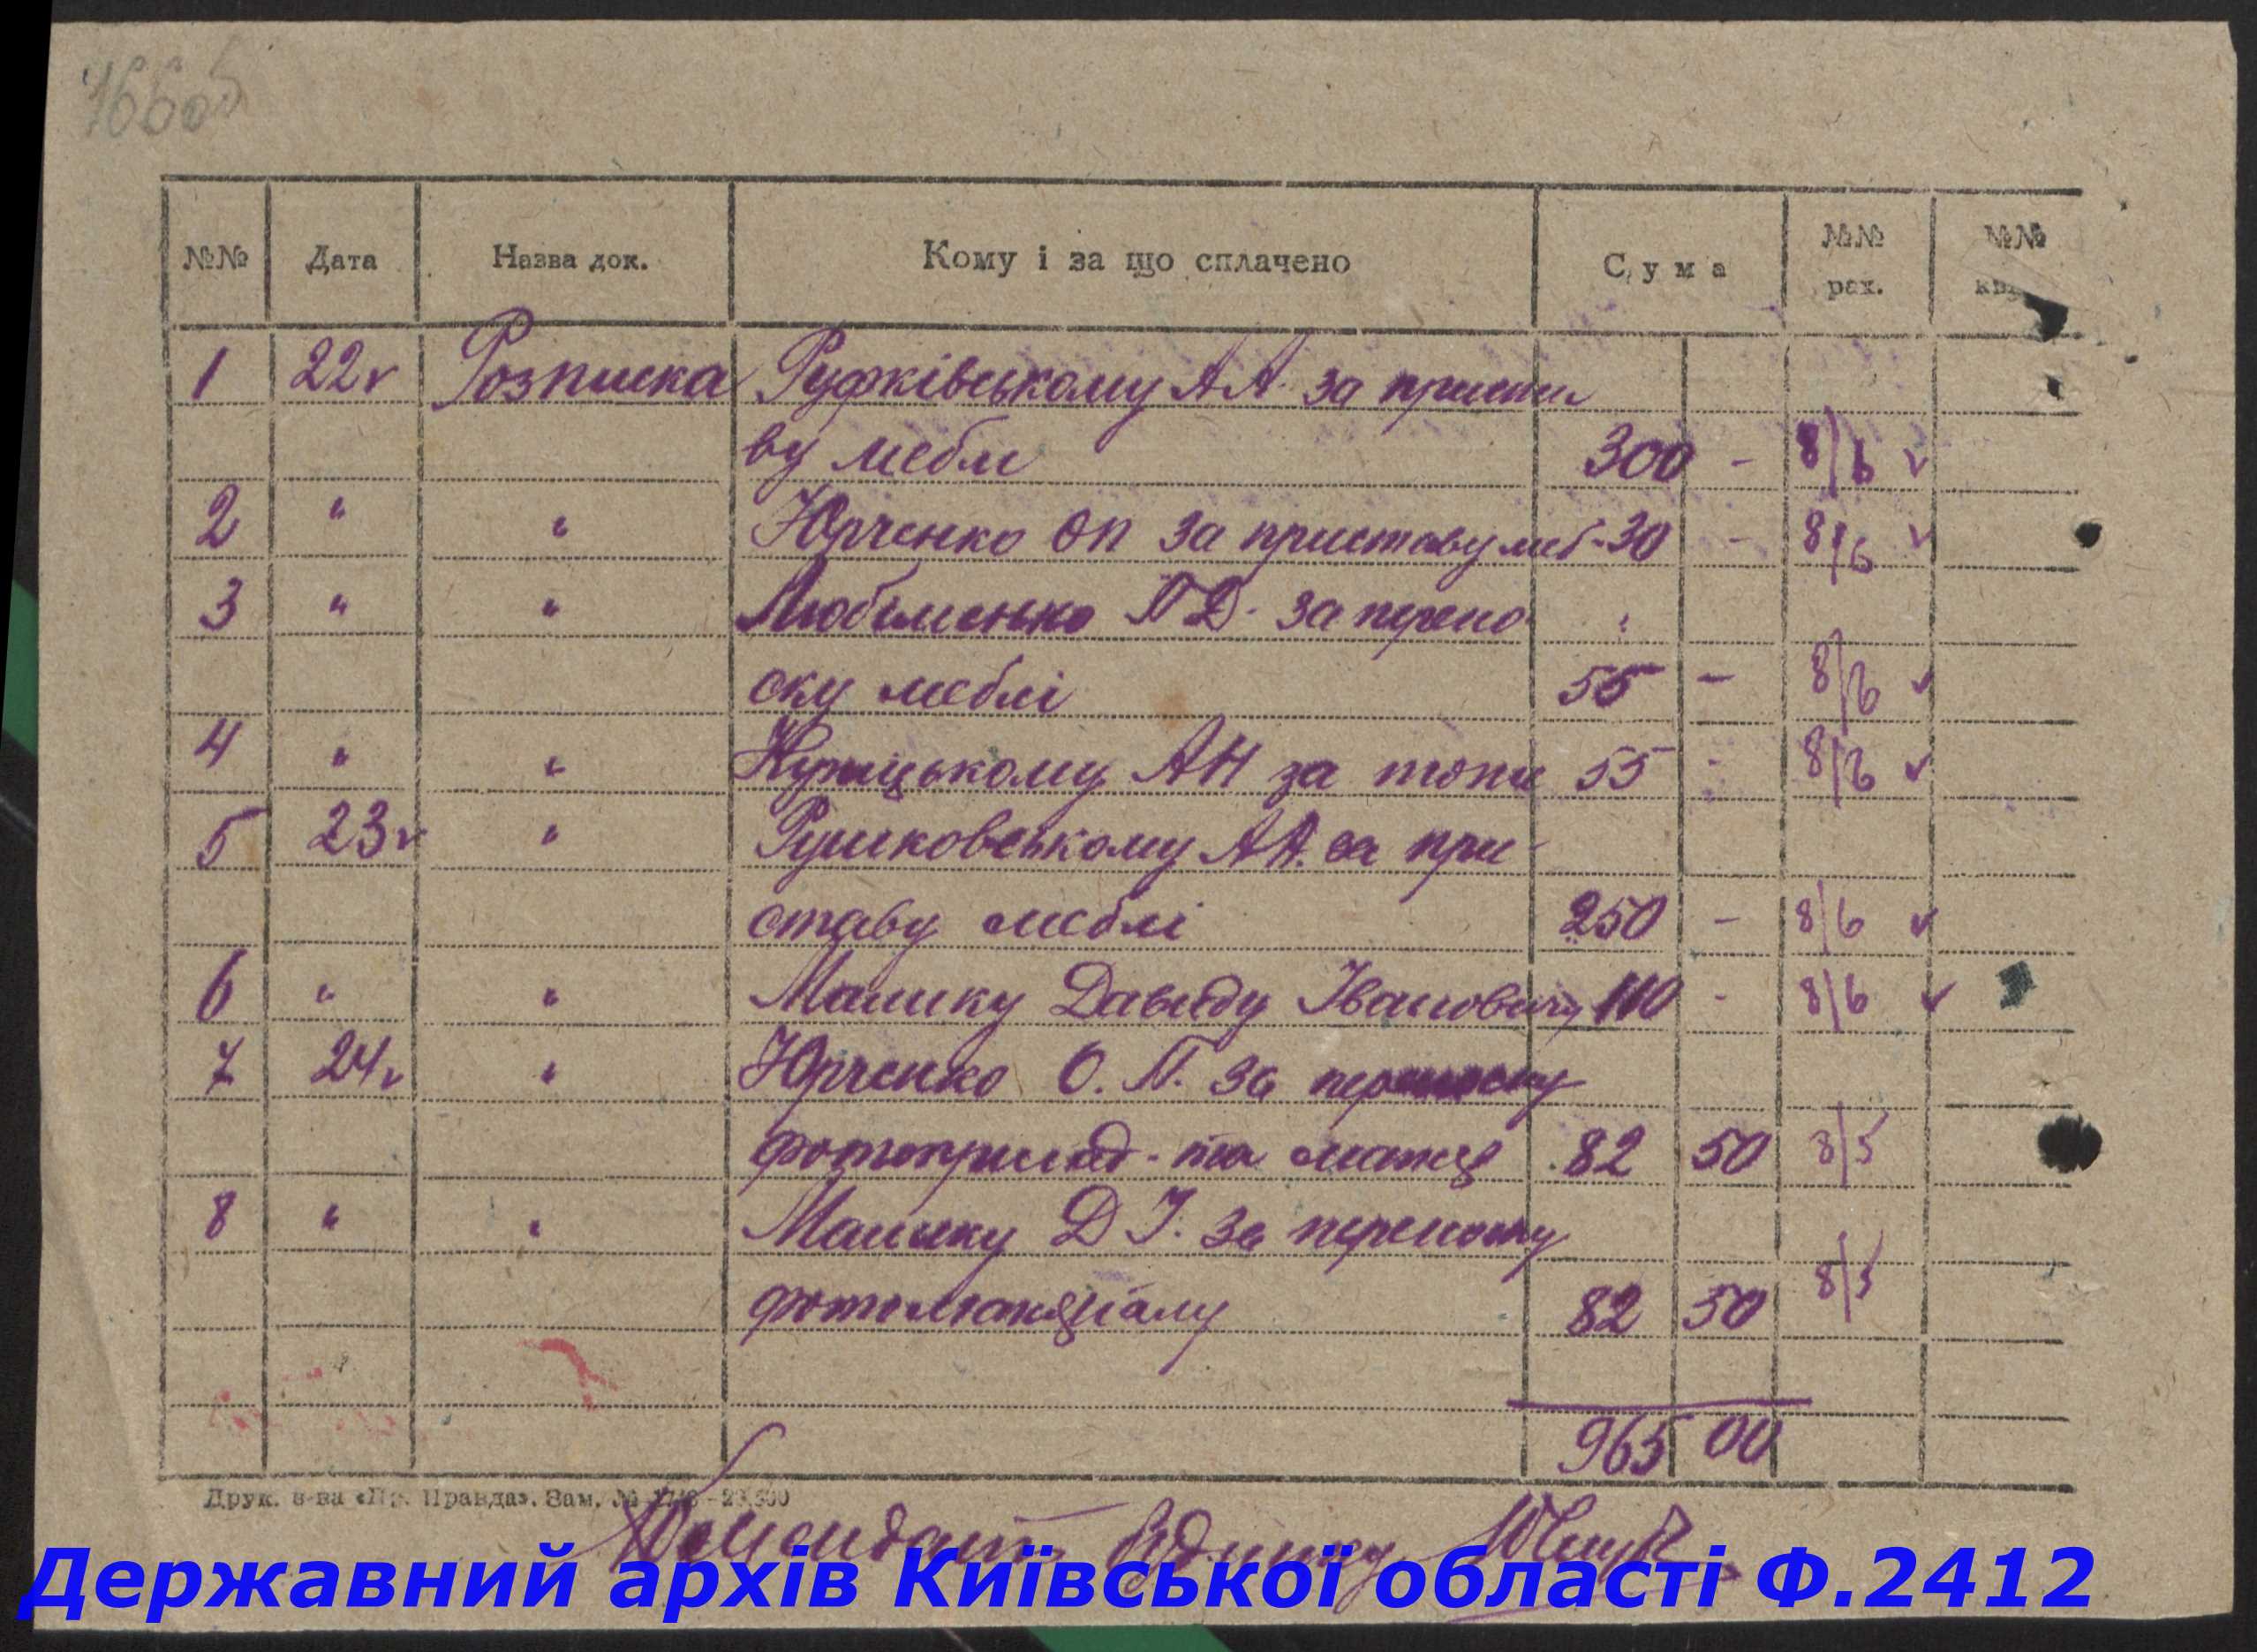 766об
№№ Дата Назва док. Кому і за що сплачено Сума №№ рах. №№
1 22 v Розписка АА. за приста
ву меблі 300 - 8/6 v
2 " " Юрченко ОП за приставу меб- 30 - 8/6 v
3 " " Любименко П Д. за перено
ску меблі 55 - 8/6 v
4 " " АН за топи 55 - 8/6 v
5 23 v " Рушковському АА. за при-
ставу меблі 250 - 8/6 v
6 " " Малику Давиду Івановичу 110 - 8/6 v
7 24 v " Юрченко О. П. за переноску
та 82 50 8/5
8 " " Малику Д І. за переноску
фотоматеріалу 82 50 8/5
965 00
Друк. в-ва Правда». Зам. №
Комендант будинку
Державний архів Київської області Ф.2412